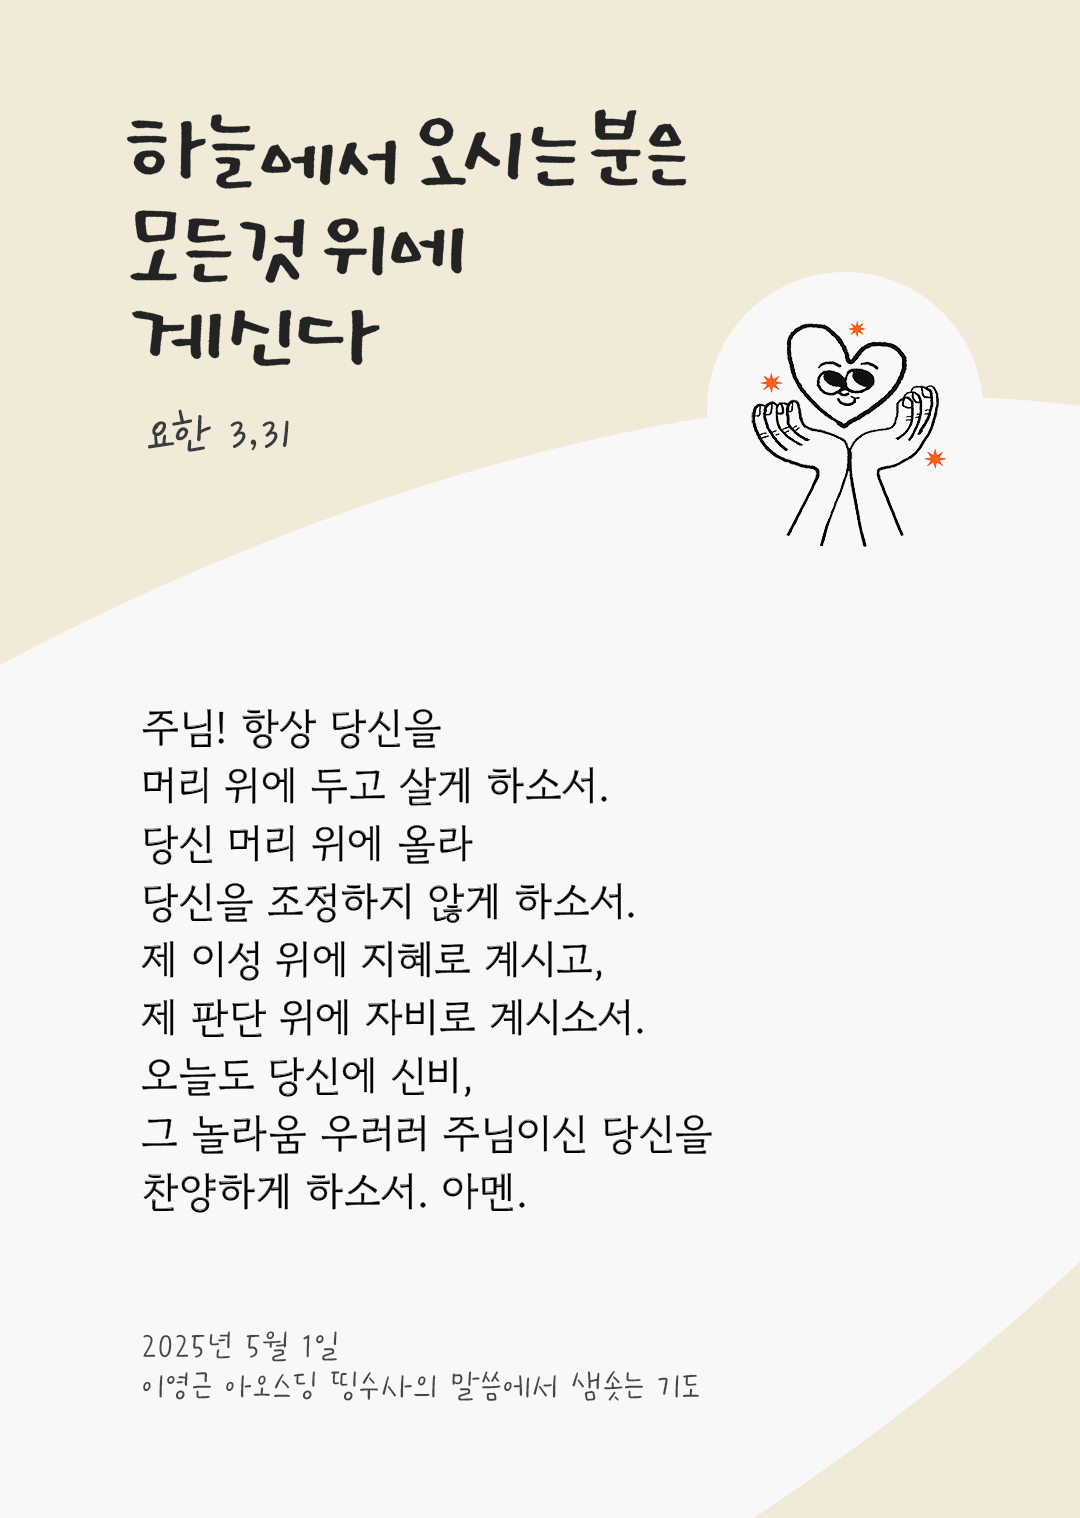 하늘에서 오시는 분은
모든것 위에
계신다
요한 3,31
주님! 항상 당신을
머리 위에 두고 살게 하소서.
당신 머리 위에 올라
당신을 조정하지 않게 하소서.
제 이성 위에 지혜로 계시고,
제 판단 위에 자비로 계시소서.
오늘도 당신에 신비,
그 놀라움 우러러 주님이신 당신을
찬양하게 하소서. 아멘.
2025년 5월 1일
이영근 아오스딩 띵수사의 말씀에서 샘솟는 기도